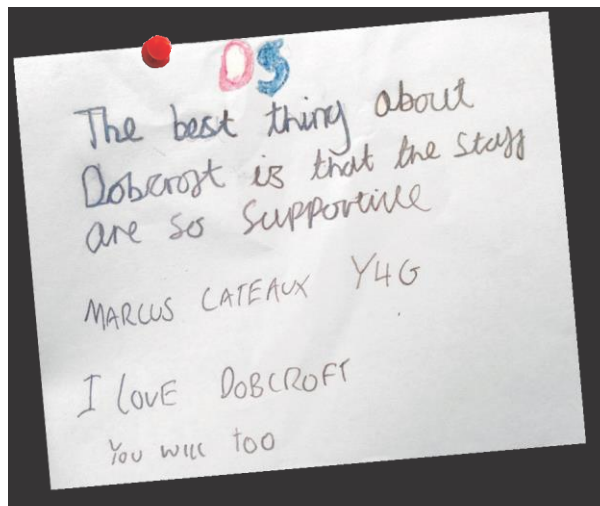 OS
The best thing about
Dobcroft is that the staff
are so supportive
MARCUS CATEAUX Y4G
I LOVE DOBCROFT
YOU WILL TOO